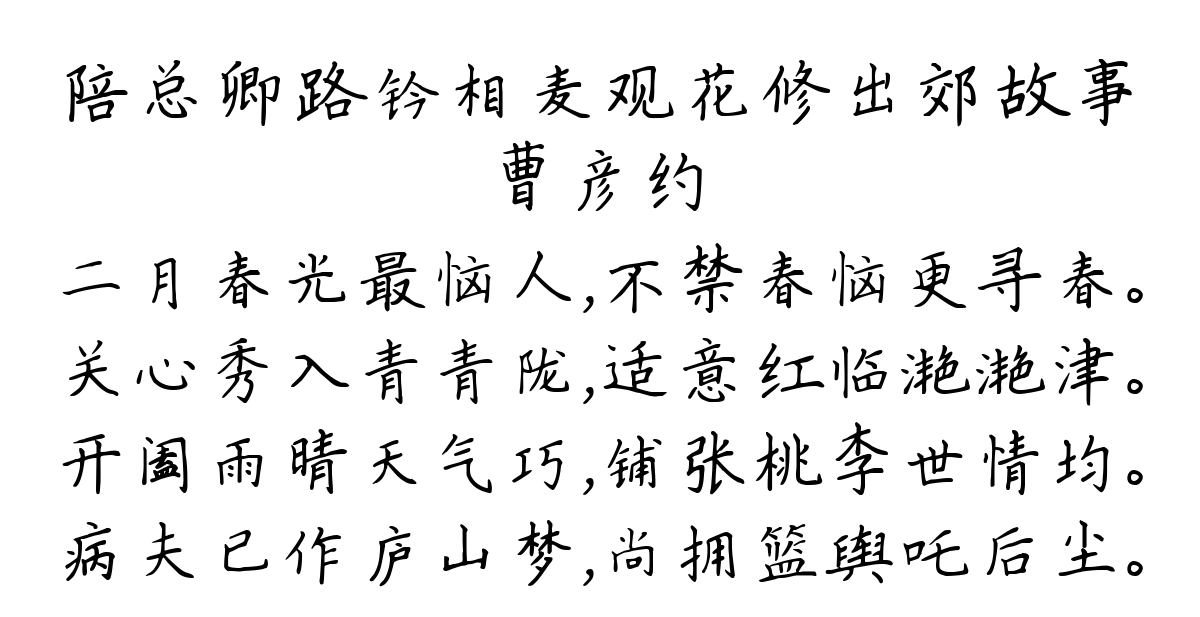 陪总卿路钤相麦观花修出郊故事
曹彦约
二月春光最恼人,不禁春恼更寻春。
关心秀入青青陇,适意红临滟滟津。
开阖雨晴天气巧,铺张桃李世情均。
病夫已作庐山梦,尚拥篮舆吒后尘。